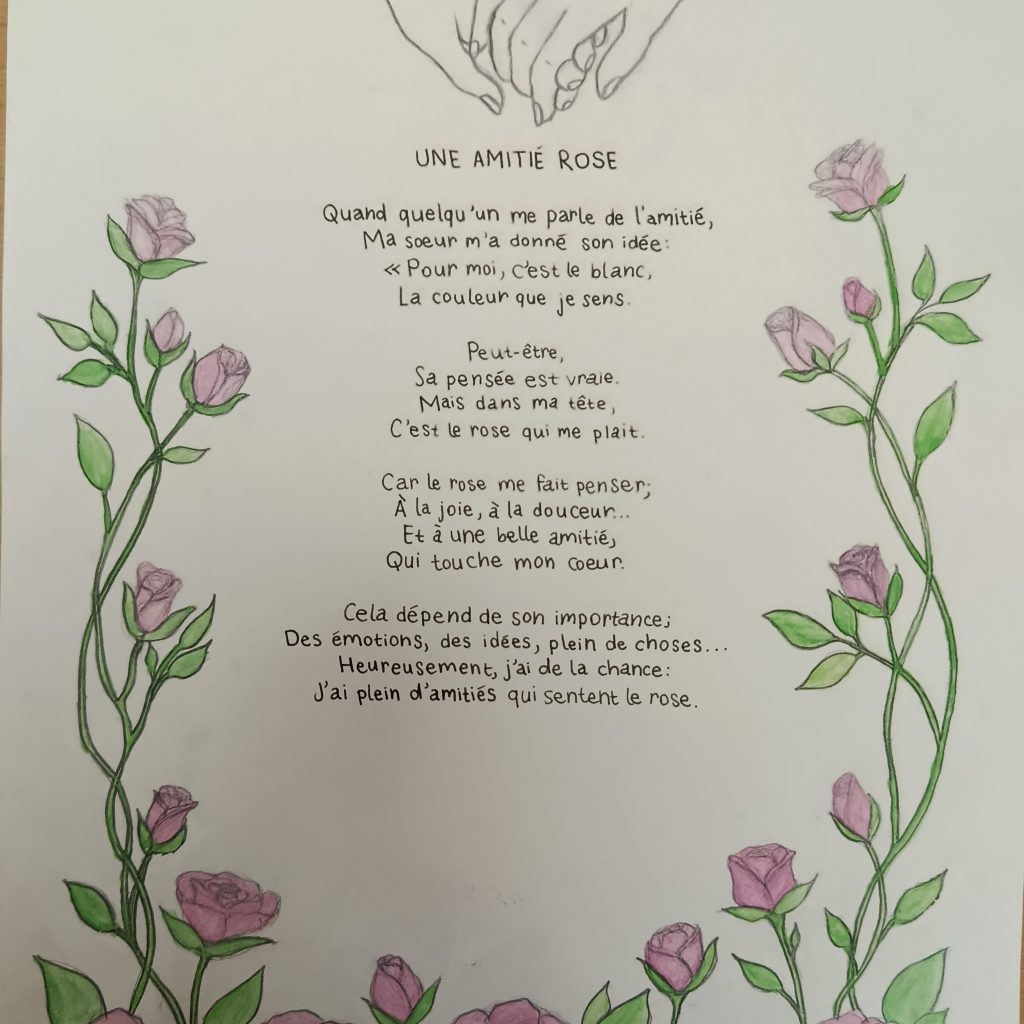 UNE AMITIÉ ROSE
Quand quelqu'un me parle de l'amitié,
Ma soeur m'a donné son idée:
« Pour moi, c'est le blanc,
La couleur que je sens.
Peut-être,
Sa pensée est vraie.
Mais dans ma tête,
C'est le rose qui me plait.
Car le rose me fait penser;
À la joie, à la douceur...
Et à une belle amitié,
Qui touche mon coeur.
Cela dépend de son importance;
Des émotions, des idées, plein de choses...
Heureusement, j'ai de la chance:
J'ai plein d'amitiés qui sentent le rose.